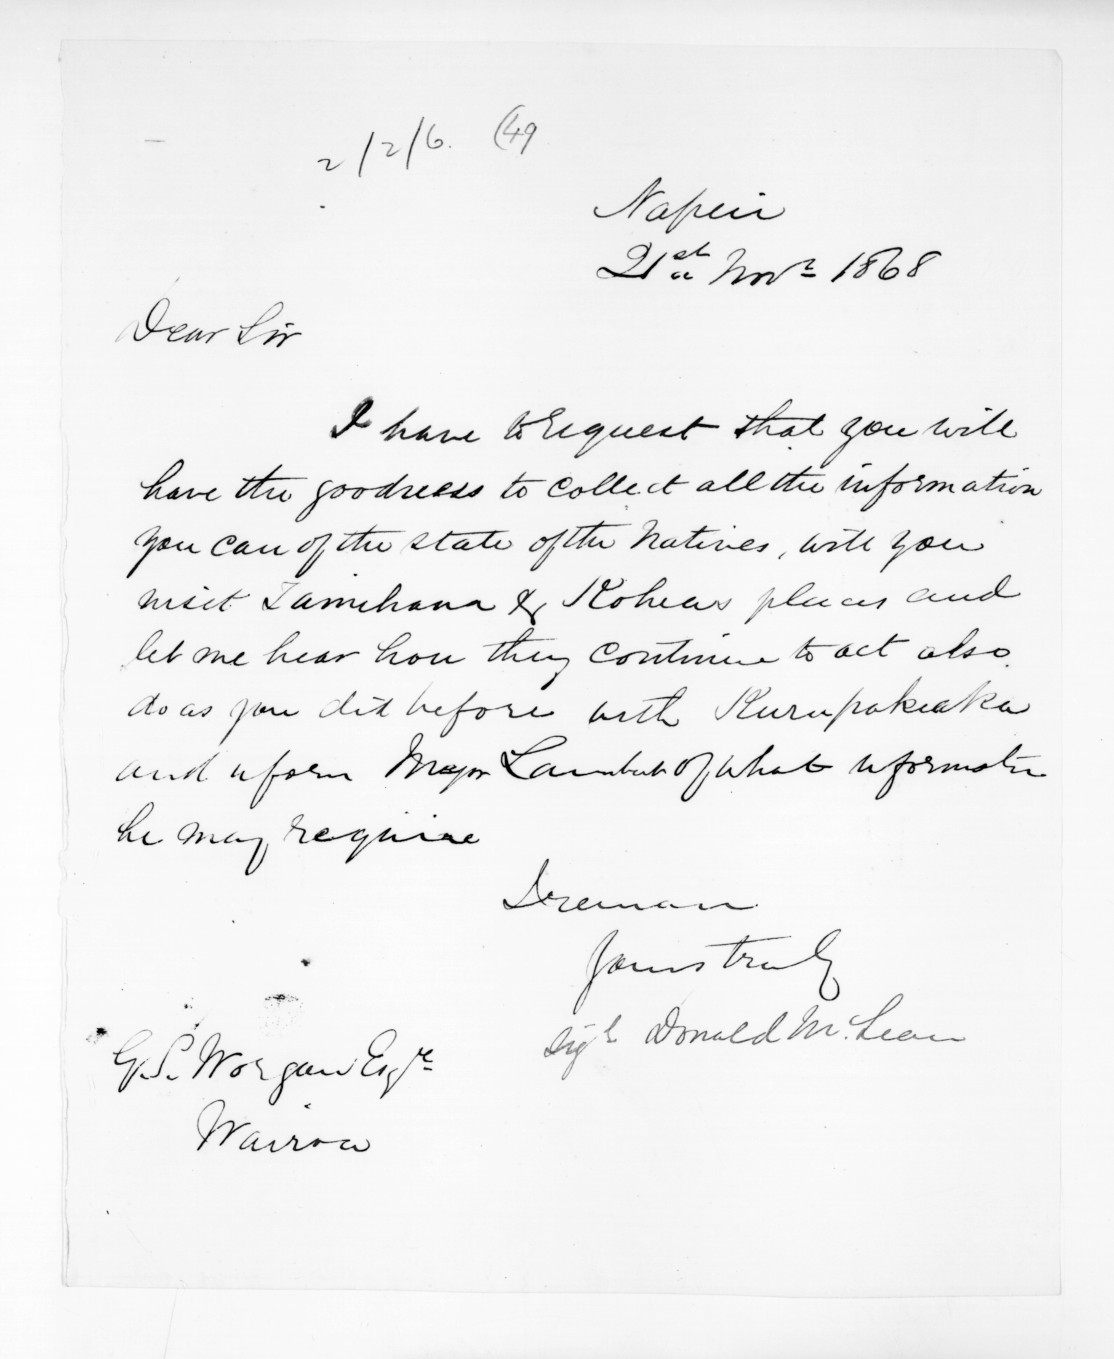 2/2/6. (49
Napier
21st Novr 1868
Dear Sir
I have to request that you will
have the goodness to collect all the information
you can of the state of the Natives, will you
visit Tamihana & Koheas places and
let me hear how they continue to act also
do as you did before with Kurupakiaka
and inform Major Lambert of what information
he may require
I remain
Yours truly
Sigd Donald McLean
G.S. Worgan Esqre
Wairoa